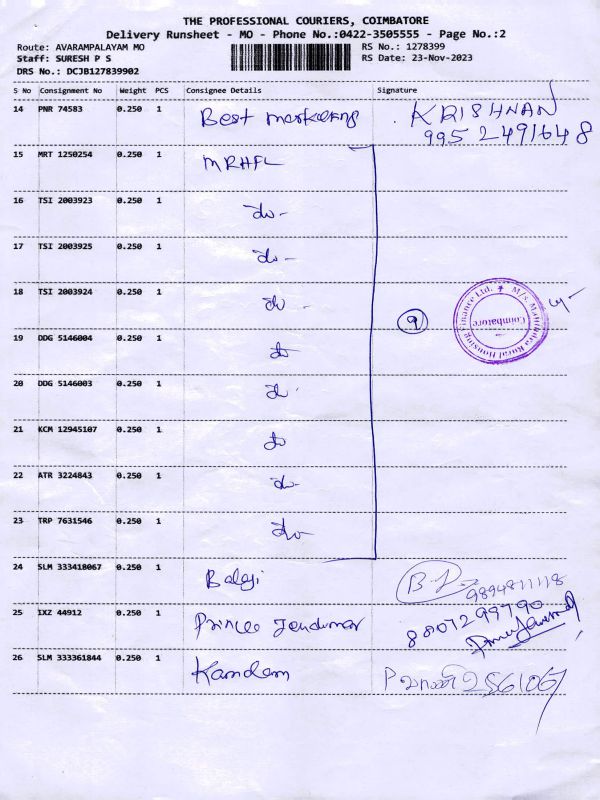 THE PROFESSIONAL COURIERS, COIMBATORE
Delivery Runsheet - MO - Phone No.:0422-3505555 - Page No.:2
Route: AVARAMPALAYAM MO
RS No.: 1278399
Staff: SURESH P S
RS Date: 23-Nov-2023
DRS No.: DCJB127839902
S No Consignment No Weight PCS Consignee Details Signature
14 PNR 74583 0.250 1 Best marketing KRISHNAN
995 2491648
15 MRT 1250254 0.250 1 MRHFL
16 TSI 2003923 0.250 1 do-
17 TSI 2003925 0.250 1 do-
18 TSI 2003924 0.250 1 do-
9
M/s. Mahindra Rural Housing Finance Ltd.
Coimbatore
19 DDG 5146004 0.250 1 do
20 DDG 5146003 0.250 1 do
21 KCM 12945107 0.250 1 do
22 ATR 3224843 0.250 1 do-
23 TRP 7631546 0.250 1 do-
24 SLM 333418067 0.250 1 Balaji 9894811118
25 IXZ 44912 0.250 1 Prince 8807299790
26 SLM 333361844 0.250 1 2561067